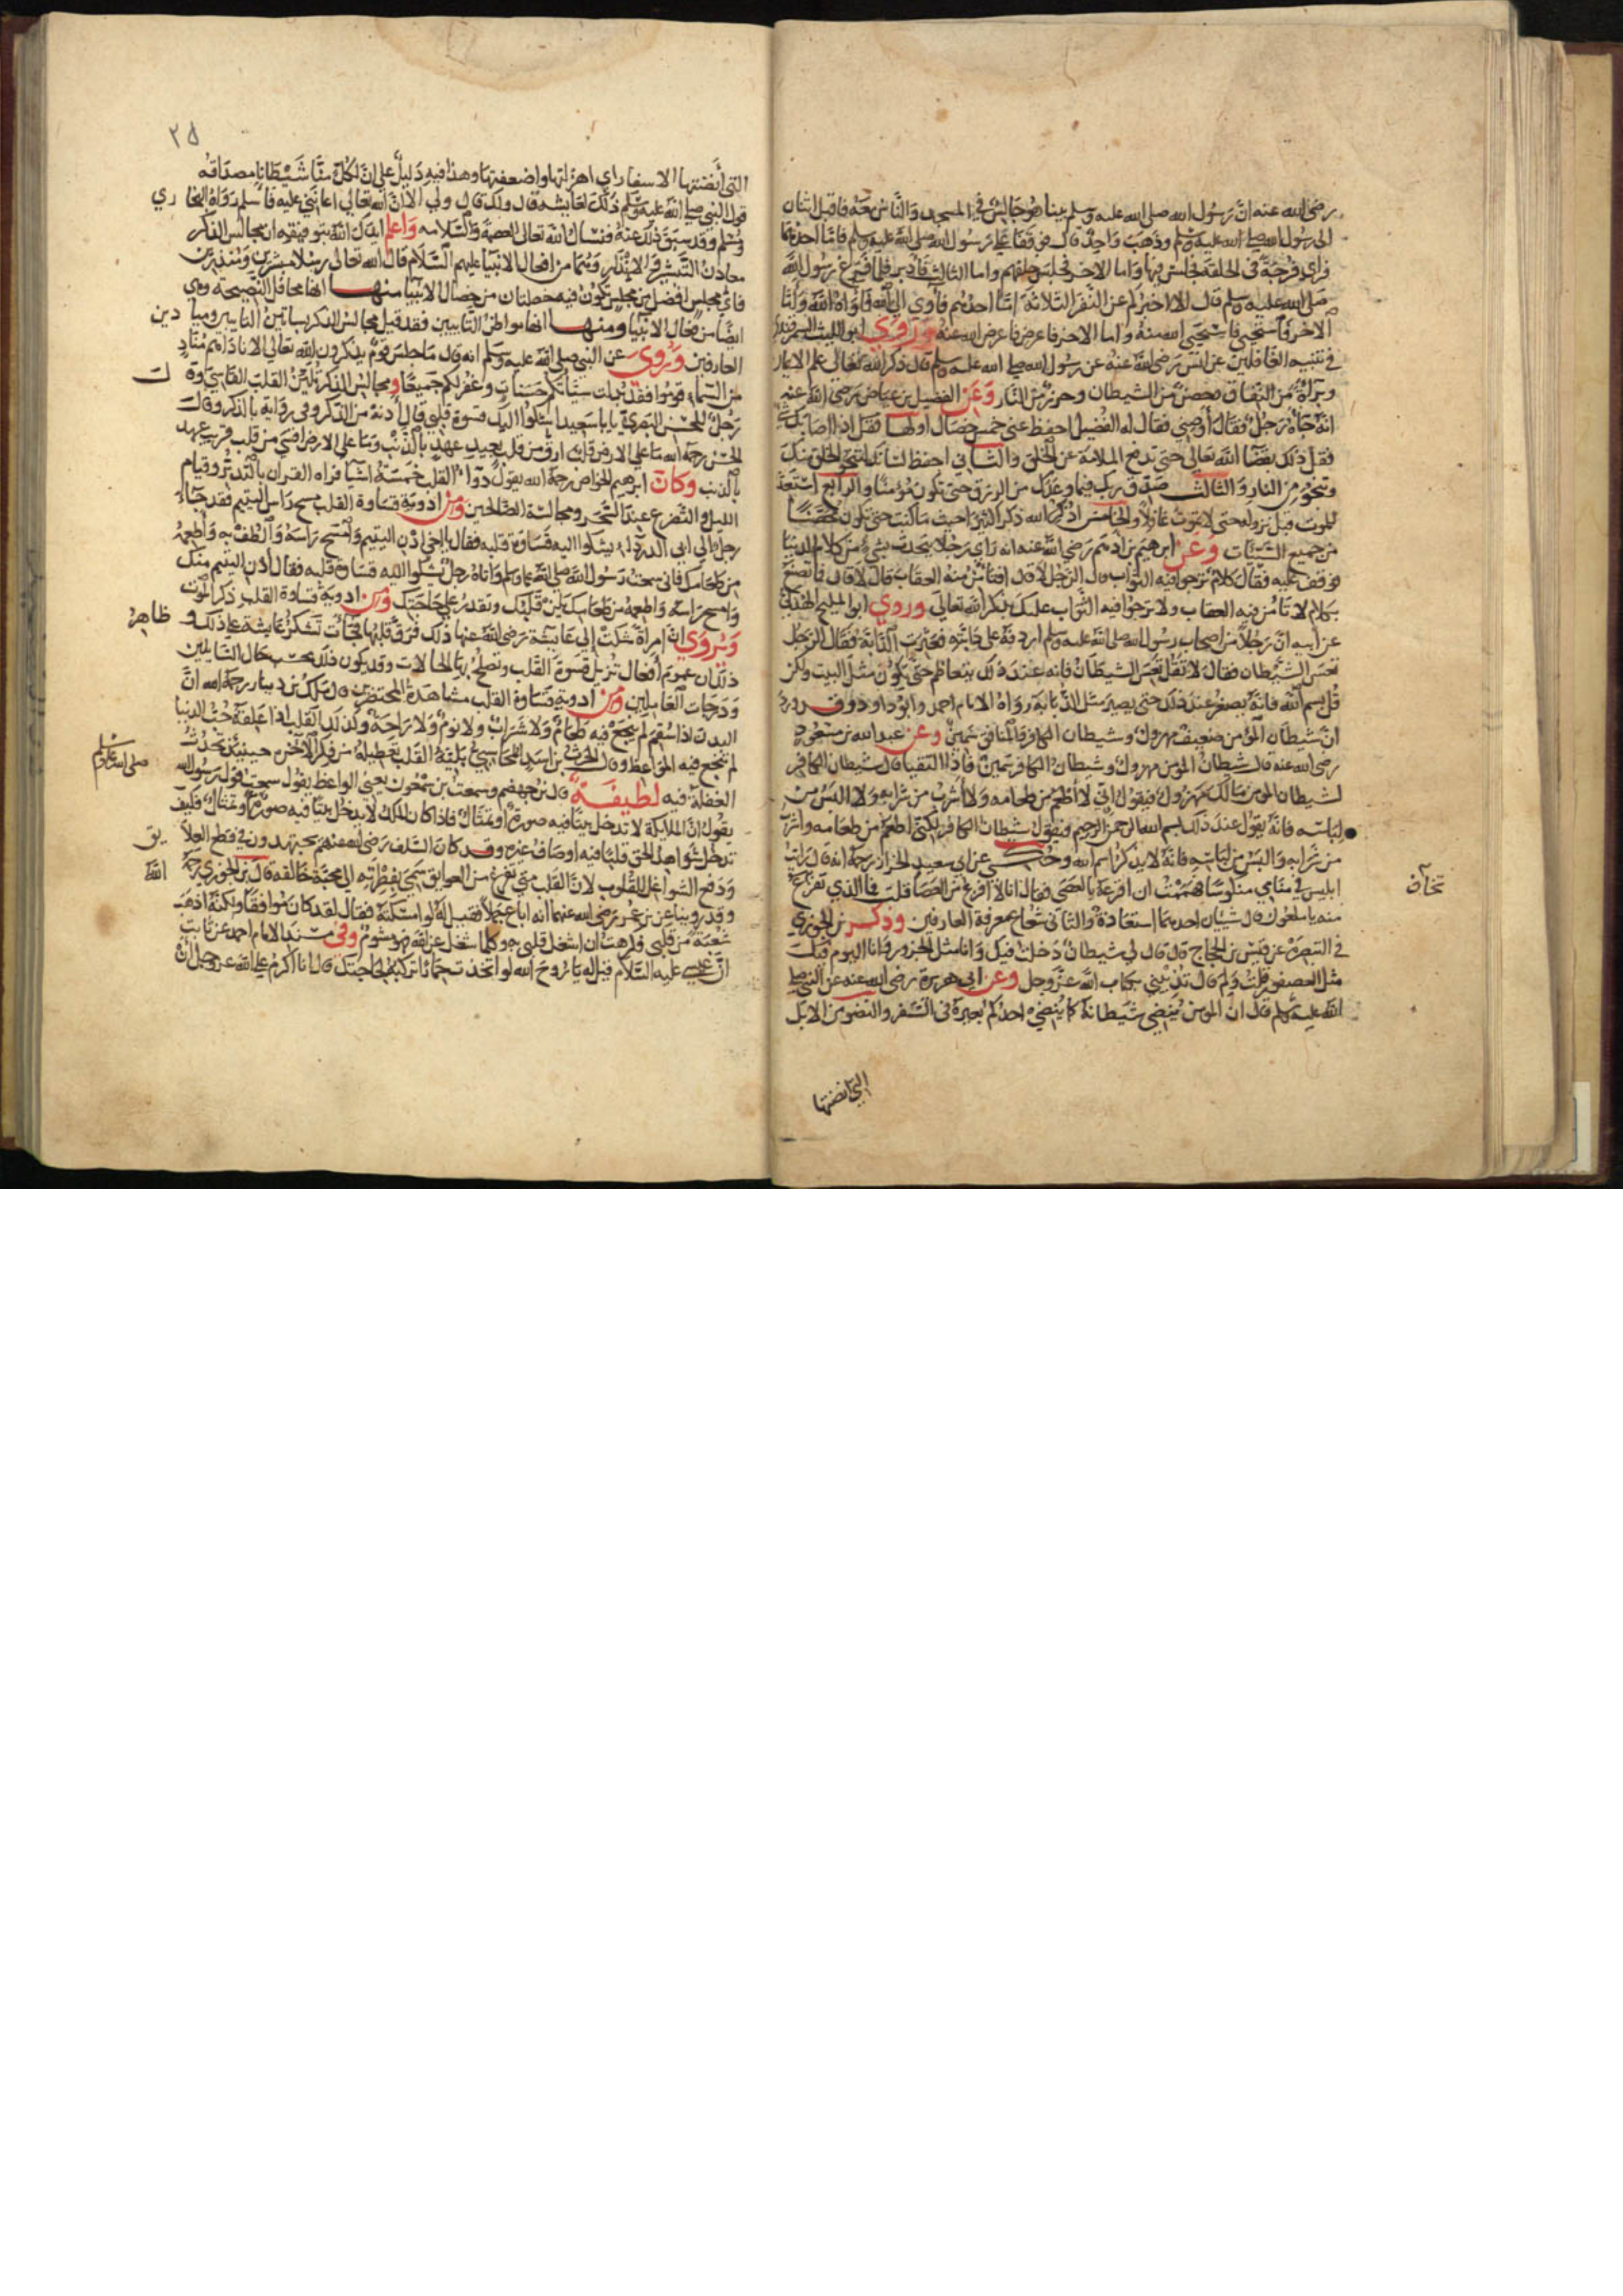 رضي الله عنه ان رسول الله صلى الله عليه وسلم بينا هو جالس في المسجد والناس معه فاقبل اثنان
الى رسول الله صلى الله عليه وسلم وذهب واحد قال فوقفا على رسول الله صلى الله عليه وسلم فاما احدهما
فراى فرجة في الحلقة فجلس فيها واما الاخر فجلس خلفهم واما الثالث فادبر فلما فرغ رسول الله
صلى الله عليه وسلم قال الا اخبركم عن النفر الثلاثة اما احدهم فاوى الى الله فاواه الله واما
الاخر فاستحيى فاستحيى الله منه واما الاخر فاعرض فاعرض الله عنه وروى ابو الليث السمرقندي
في تنبيه الغافلين عن انس رضي الله عنه عن رسول الله صلى الله عليه وسلم قال ذكر الله تعالى علم الايمان
وبراة من النفاق وحصن من الشيطان وحرز من النار وعن الفضيل بن عياض رضي الله عنه
انه جاه رجل فقال اوصني فقال له الفضيل احفظ عني خمس خصال اولها
فقل ذلك بقضا الله تعالى حتى تدفع الملامة عن الخلق والثاني احفظ لسانك لينجو الخلق منك
وتنجو من النار والثالث صدق ربك فيما وعدك من الرزق حتى تكون مؤمنا والرابع استعد
للموت قبل نزوله حتى لا تموت غافلا والخامس اذكر الله ذكرا كثيرا حيث ما كنت حتى تكون محصنا
من جميع السيئات وعن ابرهيم بن ادهم رضي الله عنه انه راى رجلا يحدث بشيء من كلام الدنيا
فوقف عليه فقال كلام ترجوا فيه الثواب قال الرجل لا قال افتامن منه العقاب قال لا قال فما تصنع
بكلام لا تامن فيه العقاب ولا ترجوا فيه الثواب عليك بذكر الله تعالى وروي ابو المليح الهذلي
عن ابيه ان رجلا من اصحاب رسول الله صلى الله عليه وسلم اردفه على دابته فعثرت الدابة فقال الرجل
تعس الشيطان فقال لا تقل تعس الشيطان فانه عند ذلك يتعاظم حتى يكون مثل البيت ولكن
قل بسم الله فانه يصغر عند ذلك حتى يصير مثل الذبابة رواه الامام احمد وابو داود وقد ورد
ان شيطان المؤمن ضعيف مهزول وشيطان الكافر والمنافق سمين وعن عبد الله بن مسعود
رضي الله عنه قال شيطان المومن مهزول وشيطان الكافر سمين فاذا التقيا قال شيطان الكافر
لشيطان المومن مالك مهزول فيقول اني لا اطعم من طعامه ولا اشرب من شرابه ولا البس من
لباسه فانه يقول عند ذلك بسم الله الرحمن الرحيم فيقول شيطان الكافر لكني اطعم من طعامه واشرب
من شرابه والبس من لباسه فانه لا يذكر اسم الله وحكي عن ابي سعيد الخراز رحمه الله انه قال رايت
ابليس في منامي منكوسا فهممت ان افزعه بالعصى فقال انا لا افزع من العصا قلت فما الذي تفزع
تخاف
منه يا ملعون قال شيئان احدهما استعاذة والثاني شعاع معرفة العارفين وذكر بن الجوزي
في التبصرة عن قيس بن الحجاج قال قال لي شيطان دخلت فيك وانا مثل الجزور وانا اليوم فيك
مثل العصفور قلت ولم قال تذيبني بكتاب الله عز وجل وعن ابي هريرة رضي الله عنه عن النبي صلى
الله عليه وسلم قال ان المومن ينضي شيطانه كما ينضي احدكم بعيره في السفر والنضو من الابل
التي انضتها
٢٥
التي انضتها الاسفار اي اهزلتها واضعفتها وهذا فيه دليل على ان لكل منا شيطانا مصداقه
قول النبي صلى الله عليه وسلم ذلك لعايشة قال ولك قال ولي الا ان الله تعالى اعانني عليه فاسلم رواه البخاري
ومسلم وقد سبق ذلك عنه فنسال الله تعالى العصمة والسلامه واعلم ايدك الله بتوفيقه ان مجالس الذكر
معادن التبشير والانذار وهما من افعال الانبيا عليهم السلام قال الله تعالى رسلا مبشرين ومنذرين
فاي مجلس افضل من مجلس تكون فيه خصلتان من خصال الانبيا منها انها محافل النصيحة وهي
ايضا من فعال الانبيا ومنها انها مواطن التايبين فقد قيل مجالس الذكر بساتين التايبين وميادين
العارفين وروى عن النبي صلى الله عليه وسلم انه قال ما جلس قوم يذكرون الله تعالى الا ناداهم مناد
من السماء قوموا فقد بدلت سيئاتكم حسنات وغفر لكم جميعا ومجالس الذكر تلين القلب القاسي وقالت
رجل للحسن البصري يا با سعيد اشكوا اليك قسوة قلبي قال ادنه من الذكر وفي رواية بالذكر وقال
الحسن رحمه الله ما على الارض قلب ارق من قلب بعيد عهد بالذنب وما على الارض اقسى من قلب قريب عهد
بالذنب وكان ابرهيم الخواص رحمه الله يقول دواء القلب خمسة اشيا قراه القران بالتدبر وقيام
الليل والتضرع عند السحر ومجالسة الصالحين ومن ادوية قساوة القلب مسح راس اليتيم فقد جاء
رجل الى ابي الدرداء يشكوا اليه قساوة قلبه فقال يا اخي ادن اليتيم وامسح براسه والطف به واطعمه
من طعامك فاني سمعت رسول الله صلى الله عليه وسلم واتاه رجل يشكوا اليه قساوة قلبه فقال ادن اليتيم منك
وامسح راسه واطعمه من طعامك يلين قلبك وتقدر على حاجتك ومن ادوية قساوة القلب ذكر الموت
ويروي ان امراة شكت الى عايشة رضي الله عنها ذلك فرق قلبها فجات تشكر عايشة على ذلك وظاهر
ذلك ان عموم افعال تزيل قسوة القلب وتصلح لها الحالات وقد يكون ذلك بحسب حال السايلين
ودرجات العاملين ومن ادوية قساوة القلب مشاهدة المحتضرين قال ملك بن دينار رحمه الله ان
البدن اذا سقم لم ينجع فيه طعام ولا شراب ولا نوم ولا راحة وكذلك القلب اذا علقه حب الدنيا
لم تنجع فيه المواعظ وقال الحرث بن اسد المحاسبي بلية القلب تعطيله من ذكر الاخره حينئذ تحدث
الغفلة فيه لطيفة قال بن جهضم وسمعت بن سمعون يعني الواعظ يقول سمعت قول رسول الله
صلى الله عليه وسلم
يقول ان الملايكة لا تدخل بيتا فيه صورة او تمثال فاذا كان الملك لا يدخل بيتا فيه صورة او تمثال فكيف
تدخل شواهد الحق قلبا فيه اوصاف غيره وقد كان السلف رضي الله عنهم يجتهدون في قطع العلايق
ودفع الشواغل للقلوب لان القلب متى تفرغ من العوايق سمى بفطرته الى محبة خالقه قال بن الجوزي رحمه الله
وقد روينا عن بن عمر رضي الله عنهما انه اباع جملا فقيل له لو امسكته فقال لقد كان موافقا ولكنه اذهب
شعبة من قلبي فكرهت ان اشغل قلبي به وكلما شغل عن الله فهو مشوم وفي مسند الامام احمد عن ثابت
ان عيسى عليه السلام قيل له يا روح الله لو اتخذت حمارا تركبه لحاجتك قال انا اكرم على الله عز وجل ان